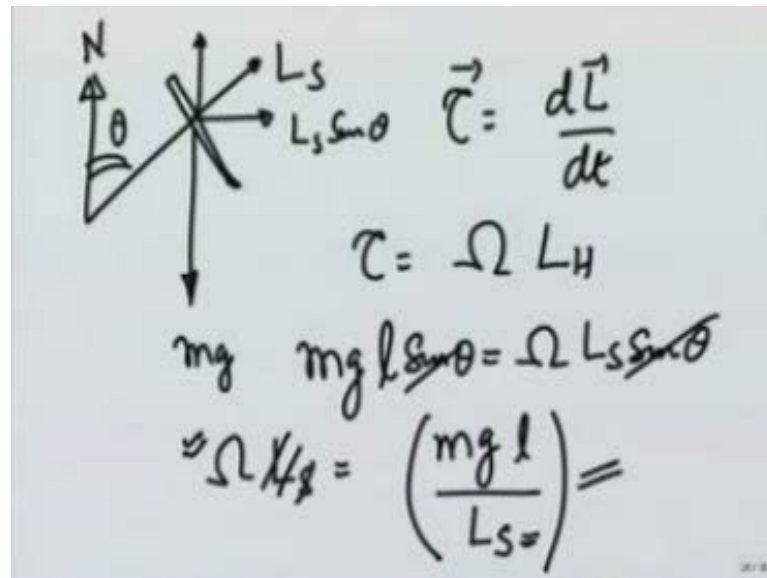 N
θ
L_S
L_S Sinθ
τ⃗ = dL⃗/dt
τ = Ω L_H
mg
mg l Sinθ = Ω L_S Sinθ
Ω = (mg l / L_S) =